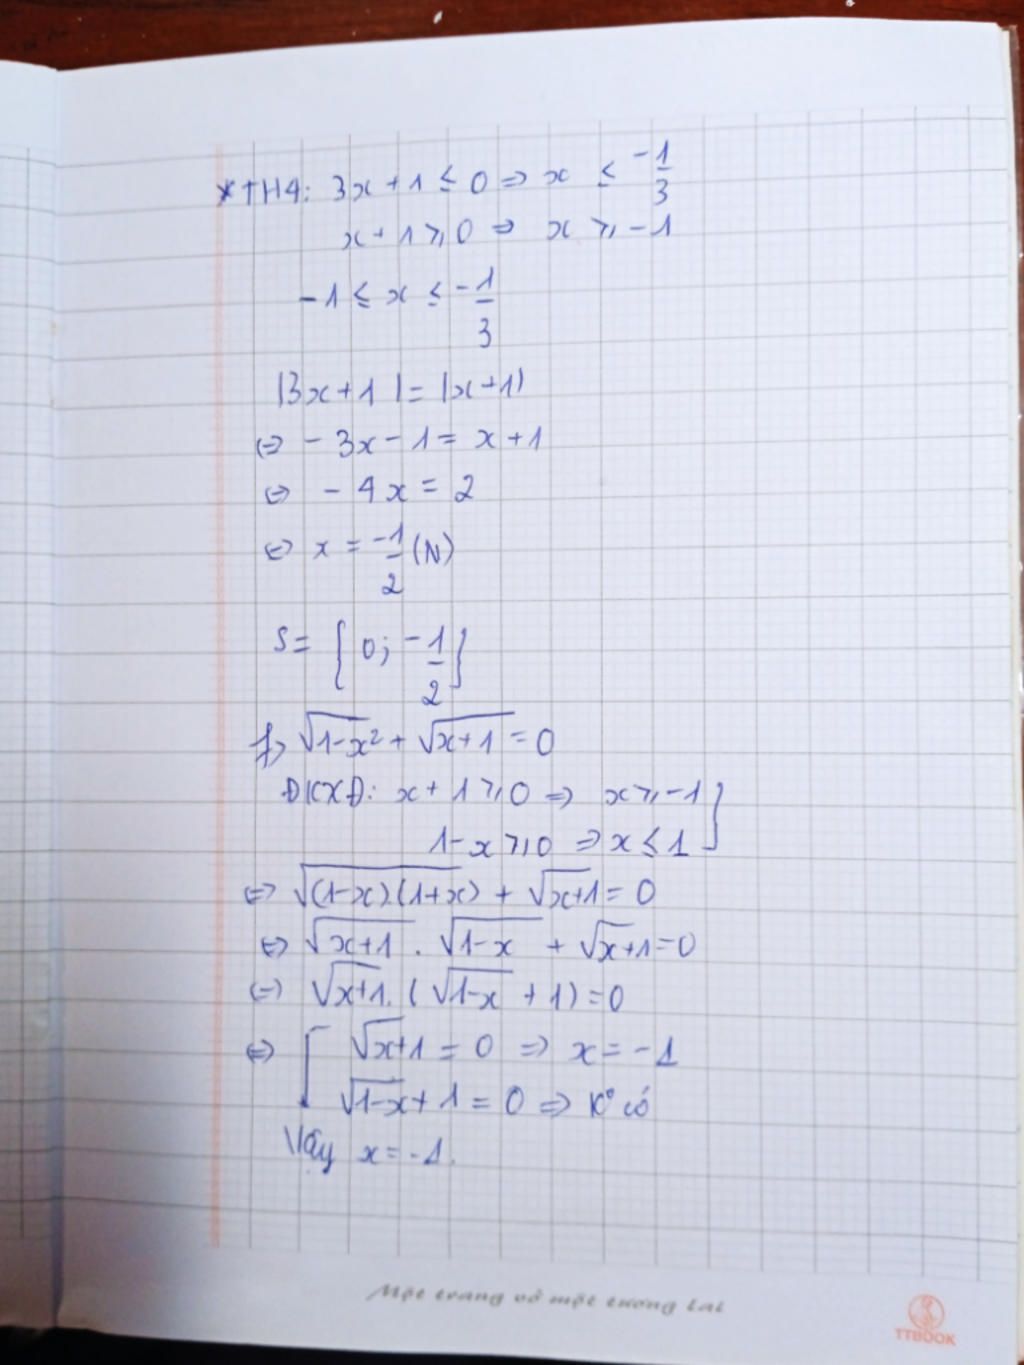 * TH4: 3x + 1 ≤ 0 ⇒ x ≤ -1/3
x + 1 ≥ 0 ⇒ x ≥ -1
-1 ≤ x ≤ -1/3
|3x + 1| = |x + 1|
⇔ -3x - 1 = x + 1
⇔ -4x = 2
⇔ x = -1/2 (N)
S = {0; -1/2}
f) √(1-x²) + √(x+1) = 0
ĐKXĐ: x + 1 ≥ 0 ⇒ x ≥ -1 }
1 - x ≥ 0 ⇒ x ≤ 1
⇔ √((1-x).(1+x)) + √(x+1) = 0
⇔ √(x+1) . √(1-x) + √(x+1) = 0
⇔ √(x+1) . (√(1-x) + 1) = 0
⇔ [ √(x+1) = 0 ⇒ x = -1
√(1-x) + 1 = 0 ⇒ K° có
Vậy x = -1.
Một trang vở một tương lai
TTBOOK